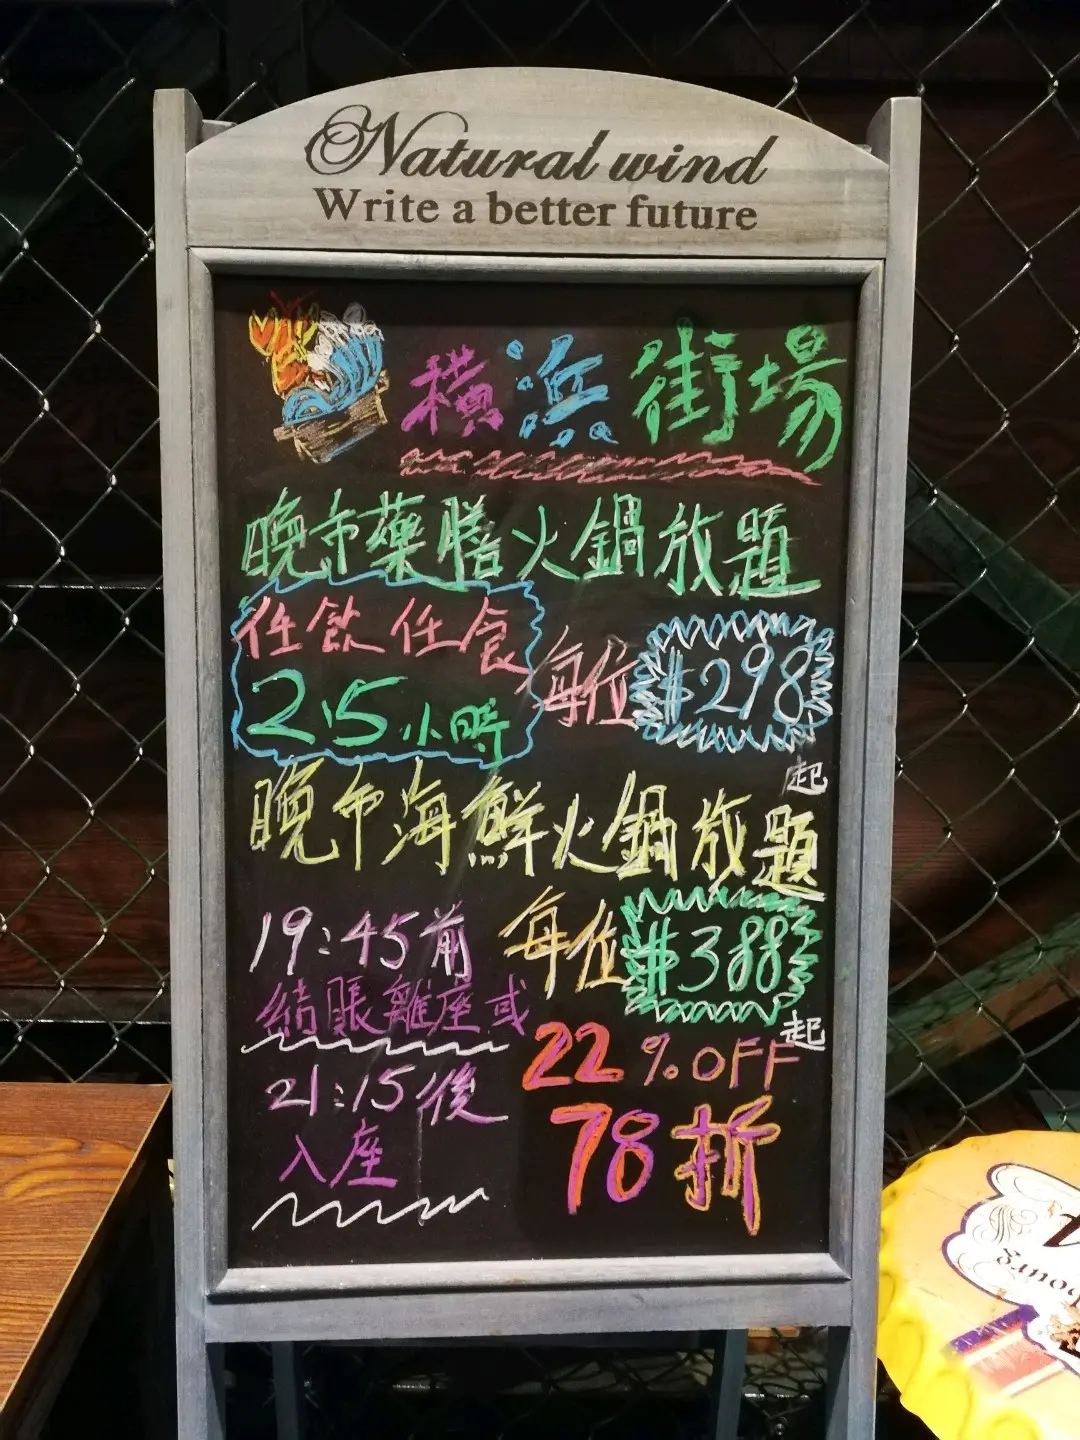 Natural wind
Write a better future
橫浜街場
晚市藥膳火鍋放題
任飲任食
2.5小時
每位 $298
起
晚市海鮮火鍋放題
每位 $388
起
19:45前
結賬離座或
21:15後
入座
22% OFF
78折